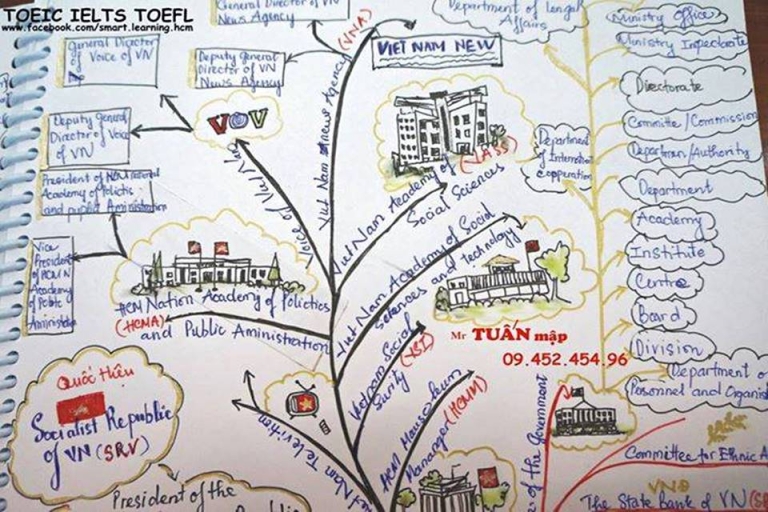 TOEIC IELTS TOEFL
www.facebook.com/smart.learning.hcm
General Director of VN
News Agency
(VNA)
VIET NAM NEW
Department of
Affairs
Ministry Office
Ministry Inspectorate
Directorate
Committe/Commission
Departmen/Authority
Department
Academy
Institute
Centre
Board
Division
Department of
Personnel and Organis
General Director
of Voice of VN
Deputy general
Director of VN
News Agency
Deputy general
Director of Voice
of VN
VOV
Voice of Viet Nam
Viet Nam news Agency
President of HCM national
Academy of Polictis
and puplit Aministration
Vice
President
of HCM N
Academy
of Poblic
Aministratio
Viet Nam Academy of
Social Sciences
(VASS)
Department
of Internation
cooperation
Viet Nam Academy of Social
sciences and technology
HCM Nation Academy of Polictics
(HCMA)
and Public Aministration
Vietnam Social
Surity
(VSI)
HCM Mausoleum
Manager (HCMM)
Mr TUẤN mập
09.452.454.96
Quốc hiệu
Socialist Republic
of VN (SRV)
Viet Nam Televition
President of the
of the Government
Committee for Ethnic A
VND
The State Bank of VN (S